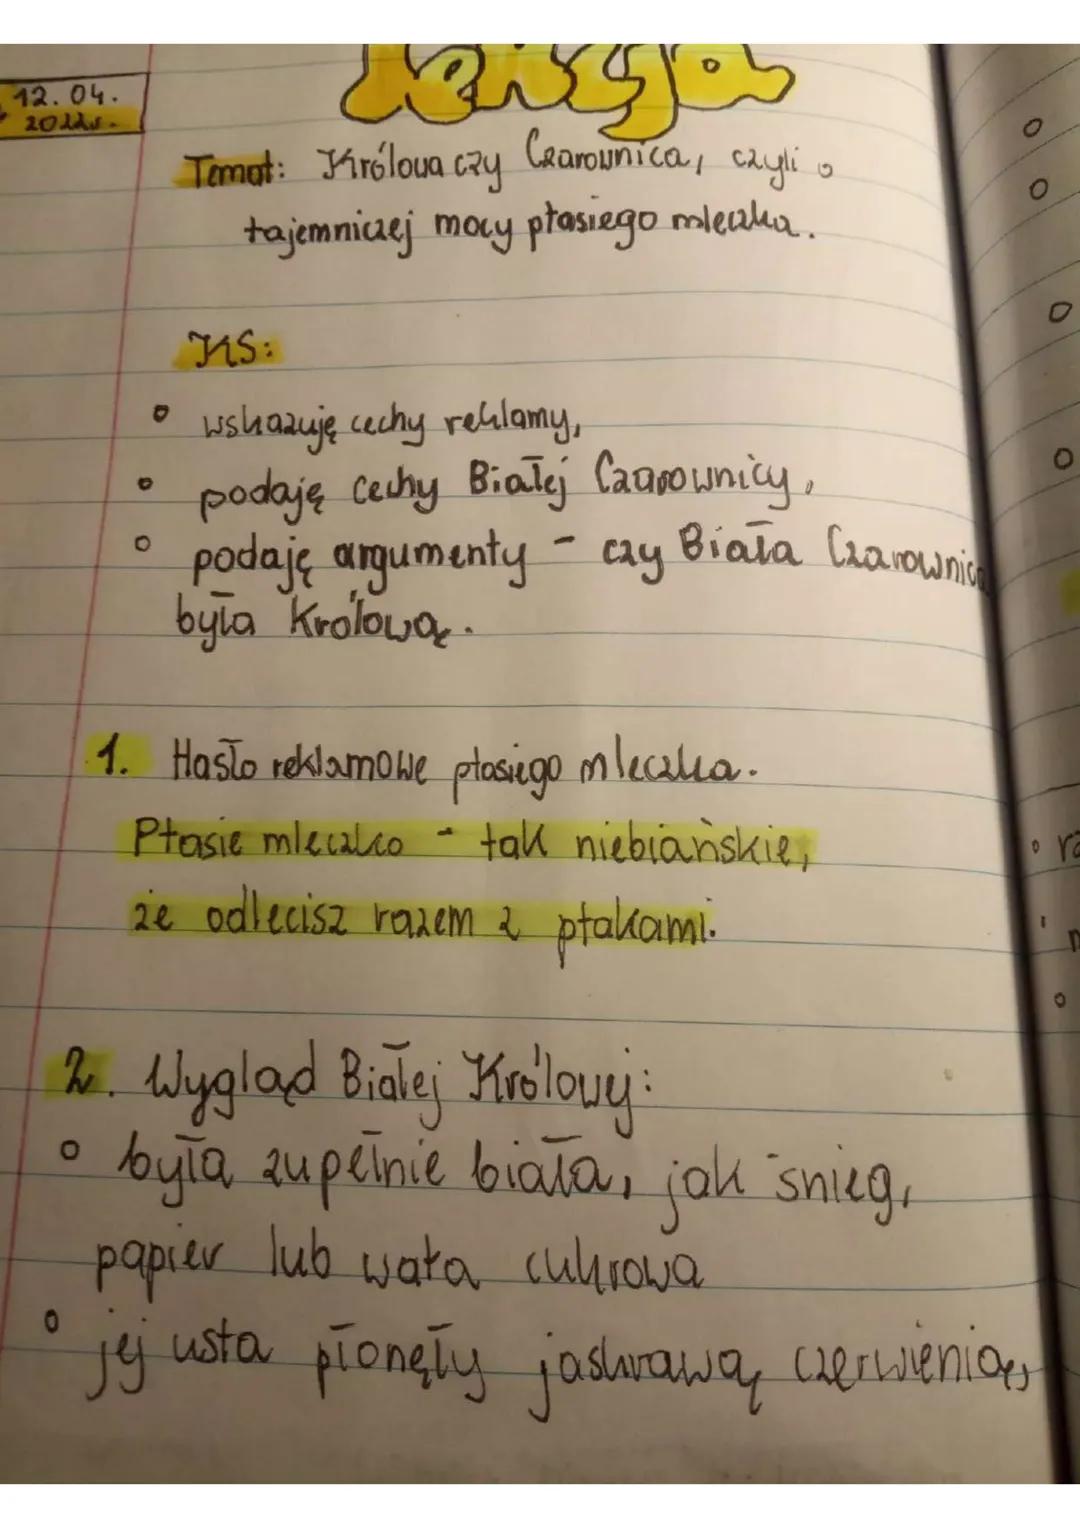 lekcja
12.04.
2022r.
Temat: Królowa czy Czarownica, czyli o
tajemniczej mocy ptasiego mleczka.
KS:
• wskazuję cechy reklamy,
• podaję cechy Białej Czarownicy,
• podaję argumenty - czy Biała Czarownica
była Królową.
1. Hasło reklamowe ptasiego mleczka.
Ptasie mleczko - tak niebiańskie,
że odlecisz razem z ptakami.
2. Wygląd Białej Królowej:
• była zupełnie biała, jak śnieg,
papier lub wata cukrowa
• jej usta płonęły jaskrawą czerwienią,